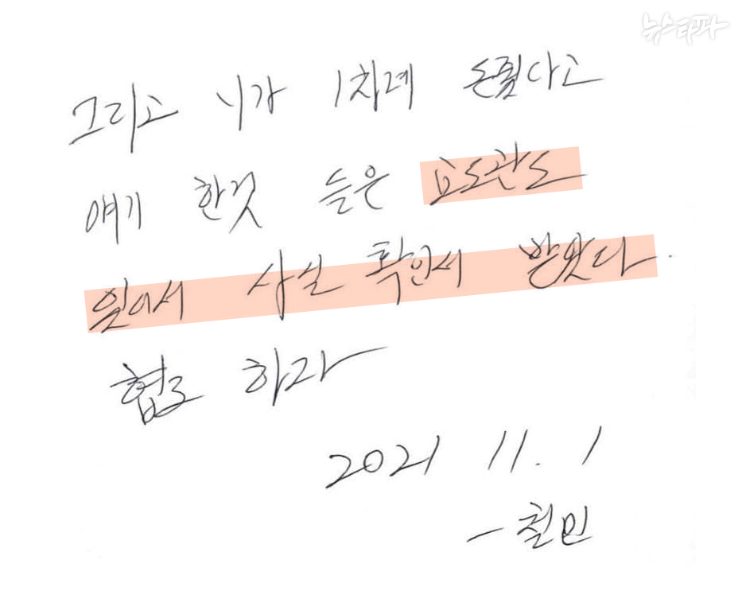 뉴스타파
그리고 니가 1차례 돈줬다고
얘기 한것 들은 교도관도
있어서 사실 확인서 받았다.
협조 하자
2021 11. 1
- 철민